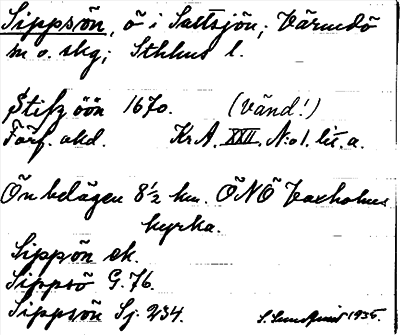 Sippsön, ö i Saltsjön; Värmdö
m o. skg; Sthlms l.
Stifz öön 1670. (Vänd!)
Förf. akd. Kr A. XXII. N:o 1. lit. a.
Ön belägen 8 1/2 km. ÖNÖ Vaxholms
kyrka.
Sippön ek.
Sippsö G. 76.
Sippsön Sj. 234.
1935.